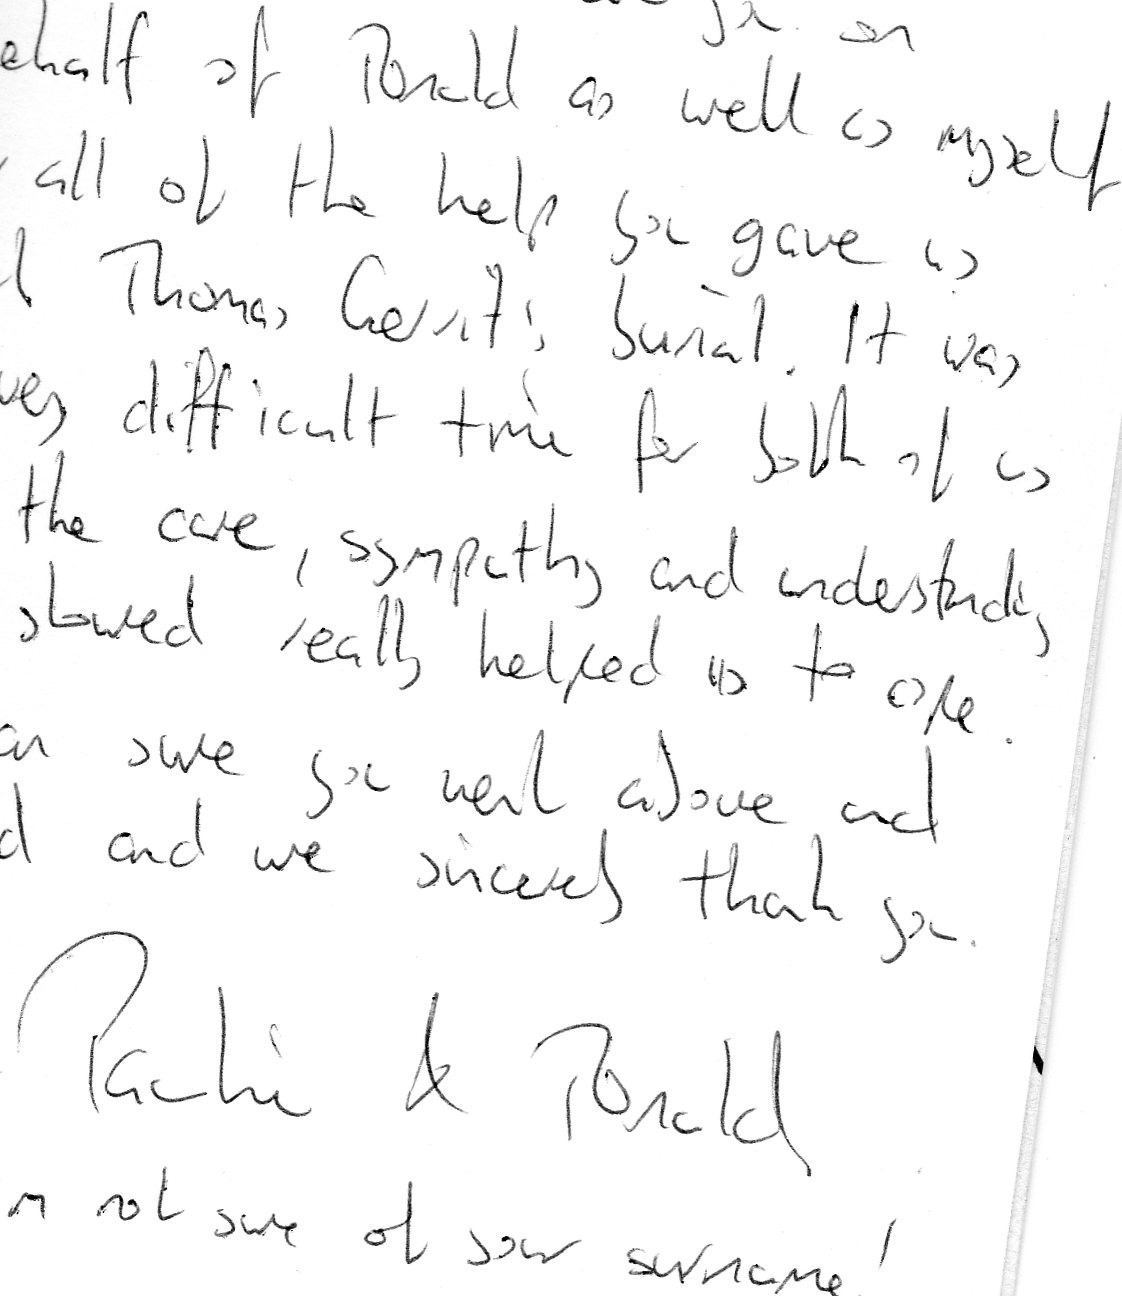 you on
behalf of Ronald as well as myself
all of the help you gave us
Thomas Gerrit's burial. It was
very difficult time for both of us
the care, sympathy and understanding
showed really helped us to cope.
am sure you went above and
and we sincerely thank you.
& Ronald
not sure of your surname!